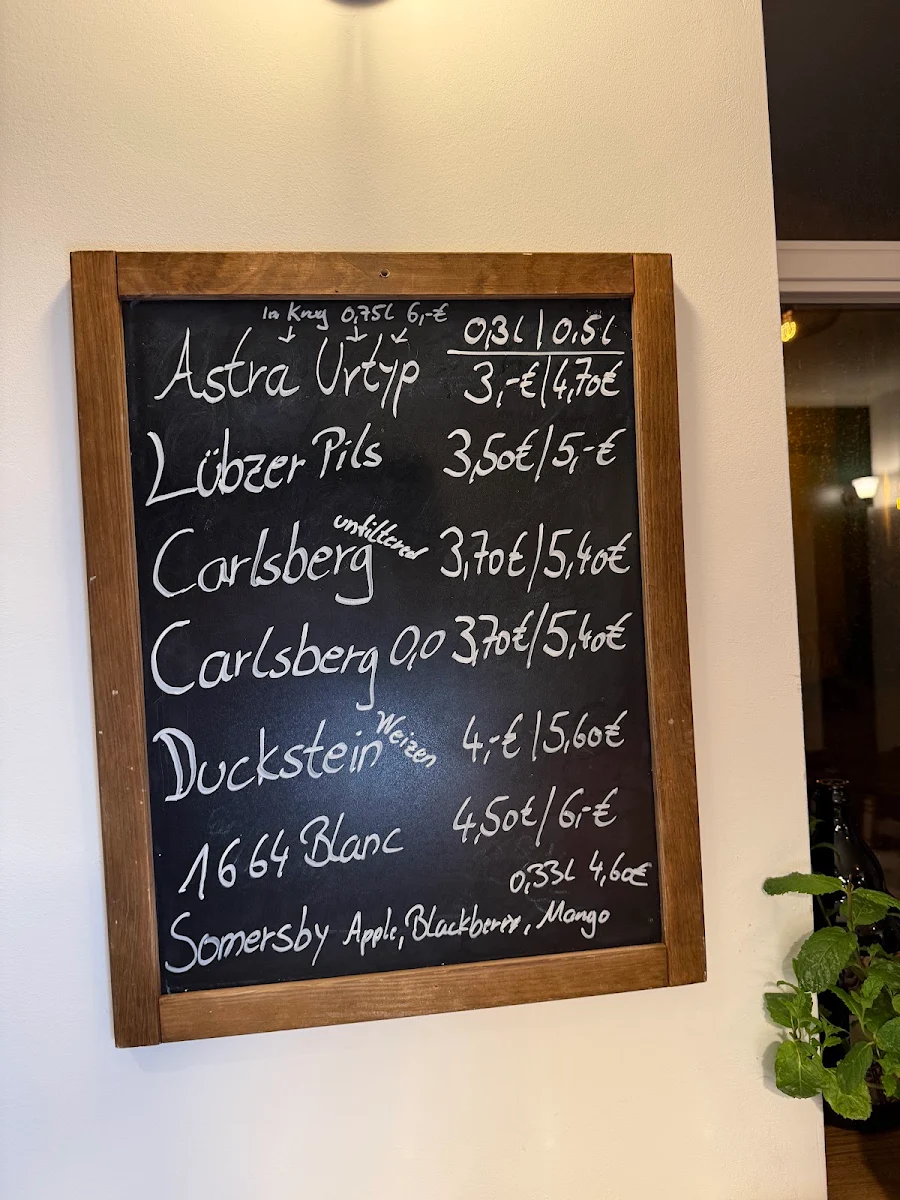 In Krug 0,75l 6,-€
0,3l | 0,5l
Astra Urtyp 3,-€ | 4,70€
Lübzer Pils 3,50€ / 5,-€
Carlsberg unfiltered 3,70€ / 5,40€
Carlsberg 0,0 3,70€ / 5,40€
Duckstein Weizen 4,-€ | 5,60€
1664 Blanc 4,50€ / 6,-€
0,33l 4,60€
Somersby Apple, Blackberry, Mango